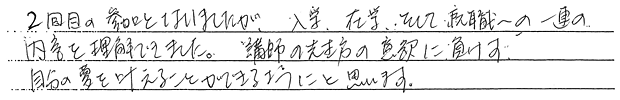 2回目の参加となりましたが、入学、在学、そして就職への一連の
内容を理解できました。講師の先生方の意欲に負けず、
自分の夢を叶えることができるようにと思います。